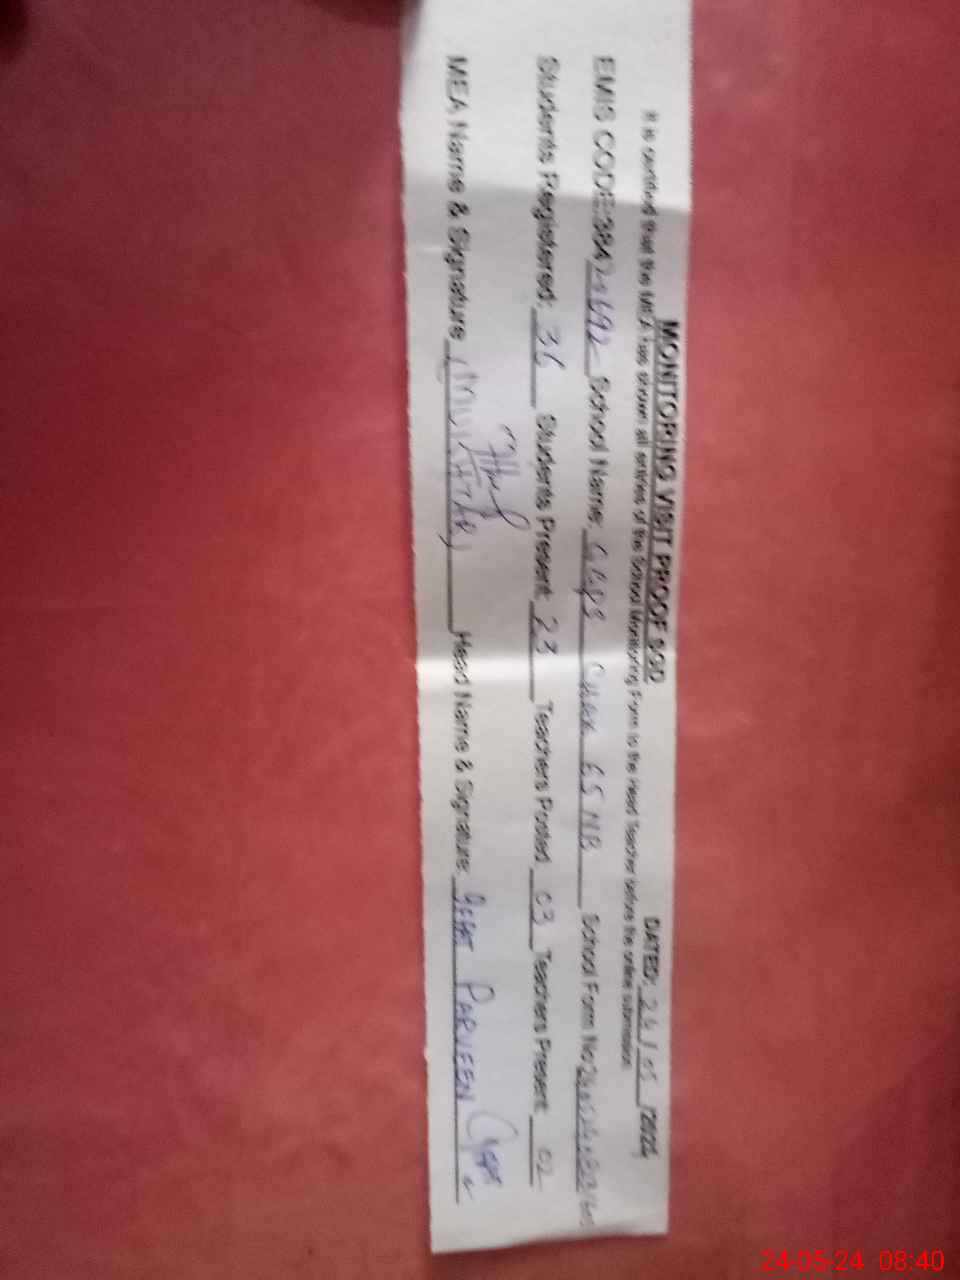 MONITORING VISIT PROOF SGD
DATED: 24/05/2024
It is certified that the MEA has shown all entries of the School Monitoring Form to the Head Teacher before the online submission
EMIS CODE:384 School Name: GGPS CHAK 65 NB School Form No:
Students Registered: 36 Students Present: 23 Teachers Posted: 03 Teachers Present: 02
MEA Name & Signature (MUKHTAR) Head Name & Signature: IFFAT PARVEEN
24-05-24 08:40